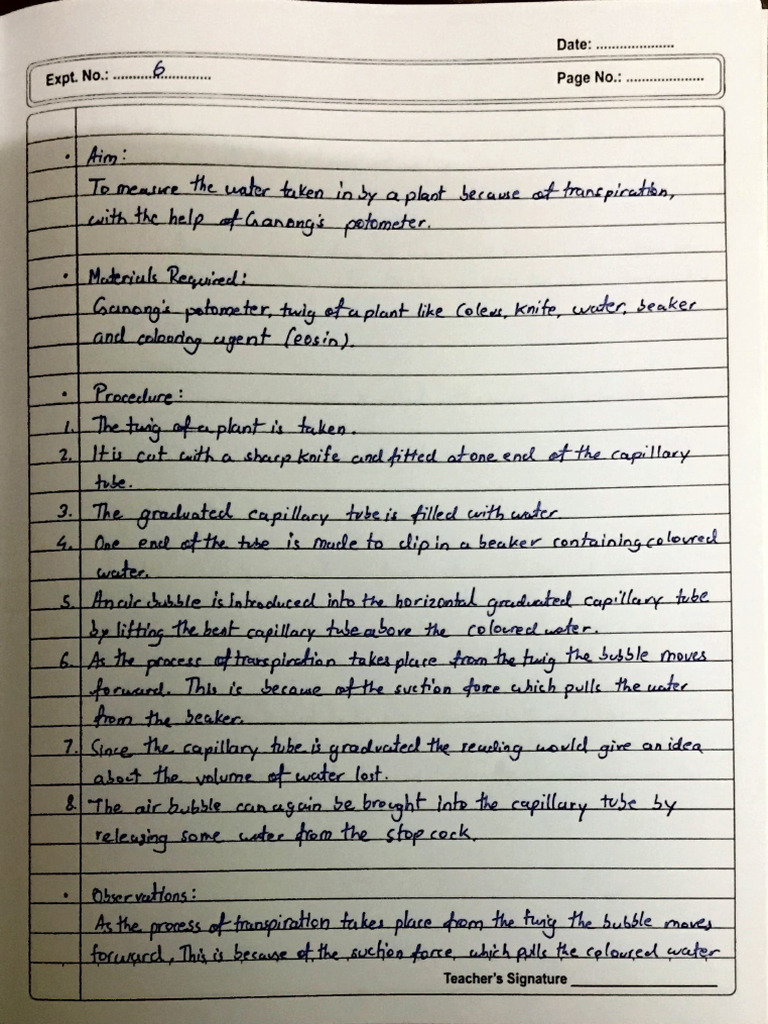 Date: ....................
Expt. No.: ..........6............
Page No.: ....................
• Aim:
To measure the water taken in by a plant because of transpiration,
with the help of Ganong's potometer.
• Materials Required:
Ganong's potometer, twig of a plant like Coleus, knife, water, beaker
and colouring agent (eosin).
• Procedure:
1. The twig of a plant is taken.
2. It is cut with a sharp knife and fitted at one end of the capillary
tube.
3. The graduated capillary tube is filled with water
4. One end of the tube is made to dip in a beaker containing coloured
water.
5. An air bubble is introduced into the horizontal graduated capillary tube
by lifting the best capillary tube above the coloured water.
6. As the process of transpiration takes place from the twig the bubble moves
forward. This is because of the suction force which pulls the water
from the beaker.
7. Since the capillary tube is graduated the reading would give an idea
about the volume of water lost.
8. The air bubble can again be brought into the capillary tube by
releasing some water from the stop cock.
• Observations:
As the process of transpiration takes place from the twig the bubble moves
forward, This is because of the suction force, which pulls the coloured water
Teacher's Signature ____________________